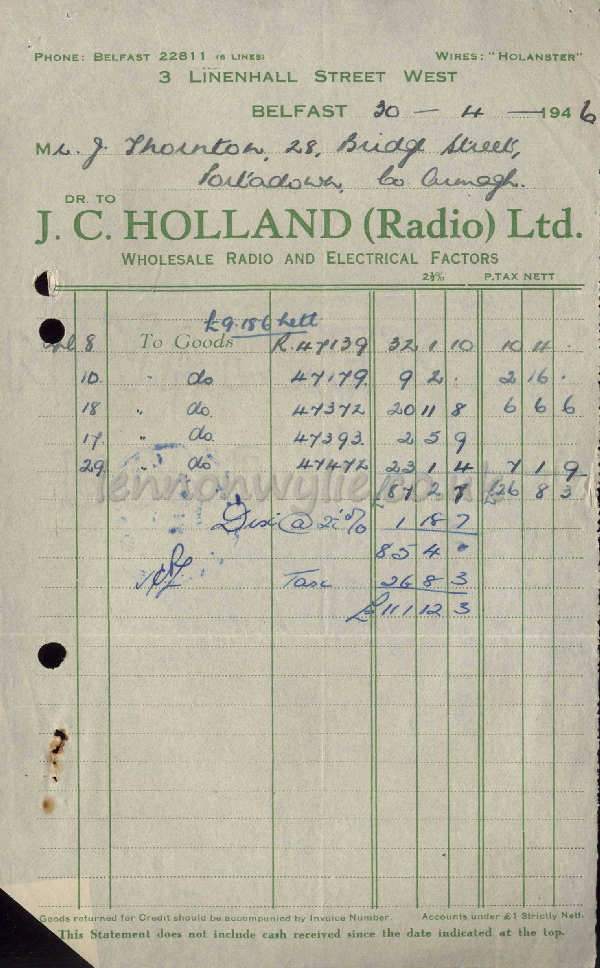 PHONE: BELFAST 22811 (6 LINES) WIRES: "HOLANSTER"
3 LINENHALL STREET WEST
BELFAST 30 — 4 — 1946
Mr. J. Thornton, 28, Bridge Street,
Portadown, Co Armagh.
DR. TO
J. C. HOLLAND (Radio) Ltd.
WHOLESALE RADIO AND ELECTRICAL FACTORS
2½% P.TAX NETT
£9.18.6 nett
8 To Goods R.47139 32 1 10 10 4 .
10. " do 47179. 9 2 . 2 16 .
18 " do. 47372 20 11 8 6 6 6
17. " do. 47393. 2 5 9
29. " do 47472 23 1 4 7 1 9
lennonwylie.co.uk
£87 2 7 £26 8 3
Disc @ 2½% 1 18 7
85 4 .
Tax 26 8 3
£111 12 3
Goods returned for Credit should be accompanied by Invoice Number. Accounts under £1 Strictly Nett.
This Statement does not include cash received since the date indicated at the top.